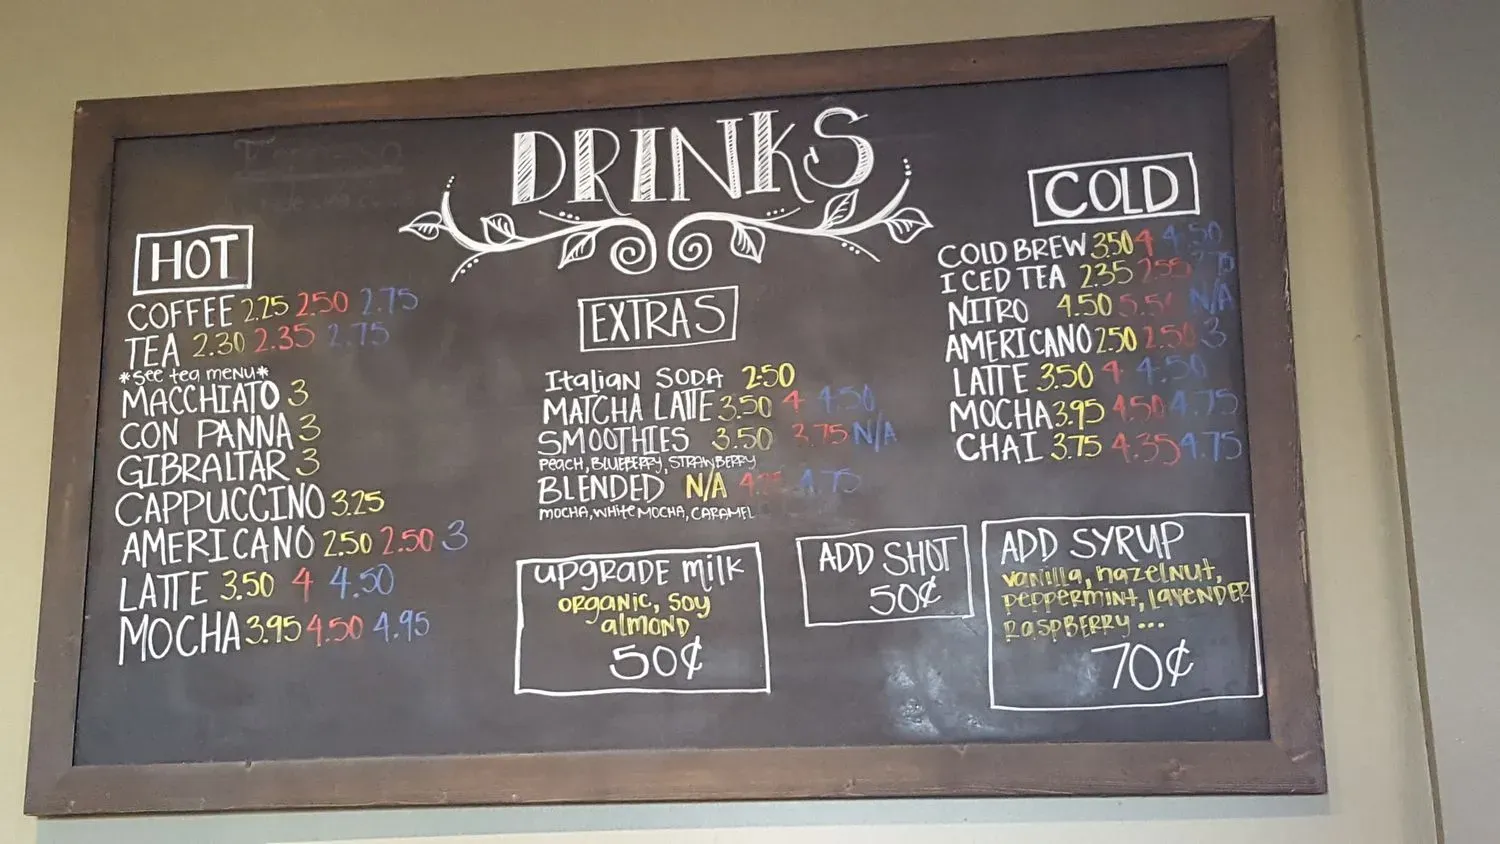 DRINKS
HOT
COFFEE 2.25 2.50 2.75
TEA 2.30 2.35 2.75
*see tea menu*
MACCHIATO 3
CON PANNA 3
GIBRALTAR 3
CAPPUCCINO 3.25
AMERICANO 2.50 2.50 3
LATTE 3.50 4 4.50
MOCHA 3.95 4.50 4.95
EXTRAS
Italian SODA 2.50
MATCHA LATTE 3.50 4 4.50
SMOOTHIES 3.50 3.75 N/A
PEACH, BLUEBERRY, STRAWBERRY
BLENDED N/A 4.75
MOCHA, WHITE MOCHA, CARAMEL
upgrade milk
organic, soy
almond
50¢
ADD SHOT
50¢
COLD
COLD BREW 3.50 4 4.50
ICED TEA 2.35 2.55 2.75
NITRO 4.50 5.50 N/A
AMERICANO 2.50 2.50 3
LATTE 3.50 4 4.50
MOCHA 3.95 4.50 4.75
CHAI 3.75 4.35 4.75
ADD SYRUP
vanilla, hazelnut,
peppermint, lavender
raspberry...
70¢